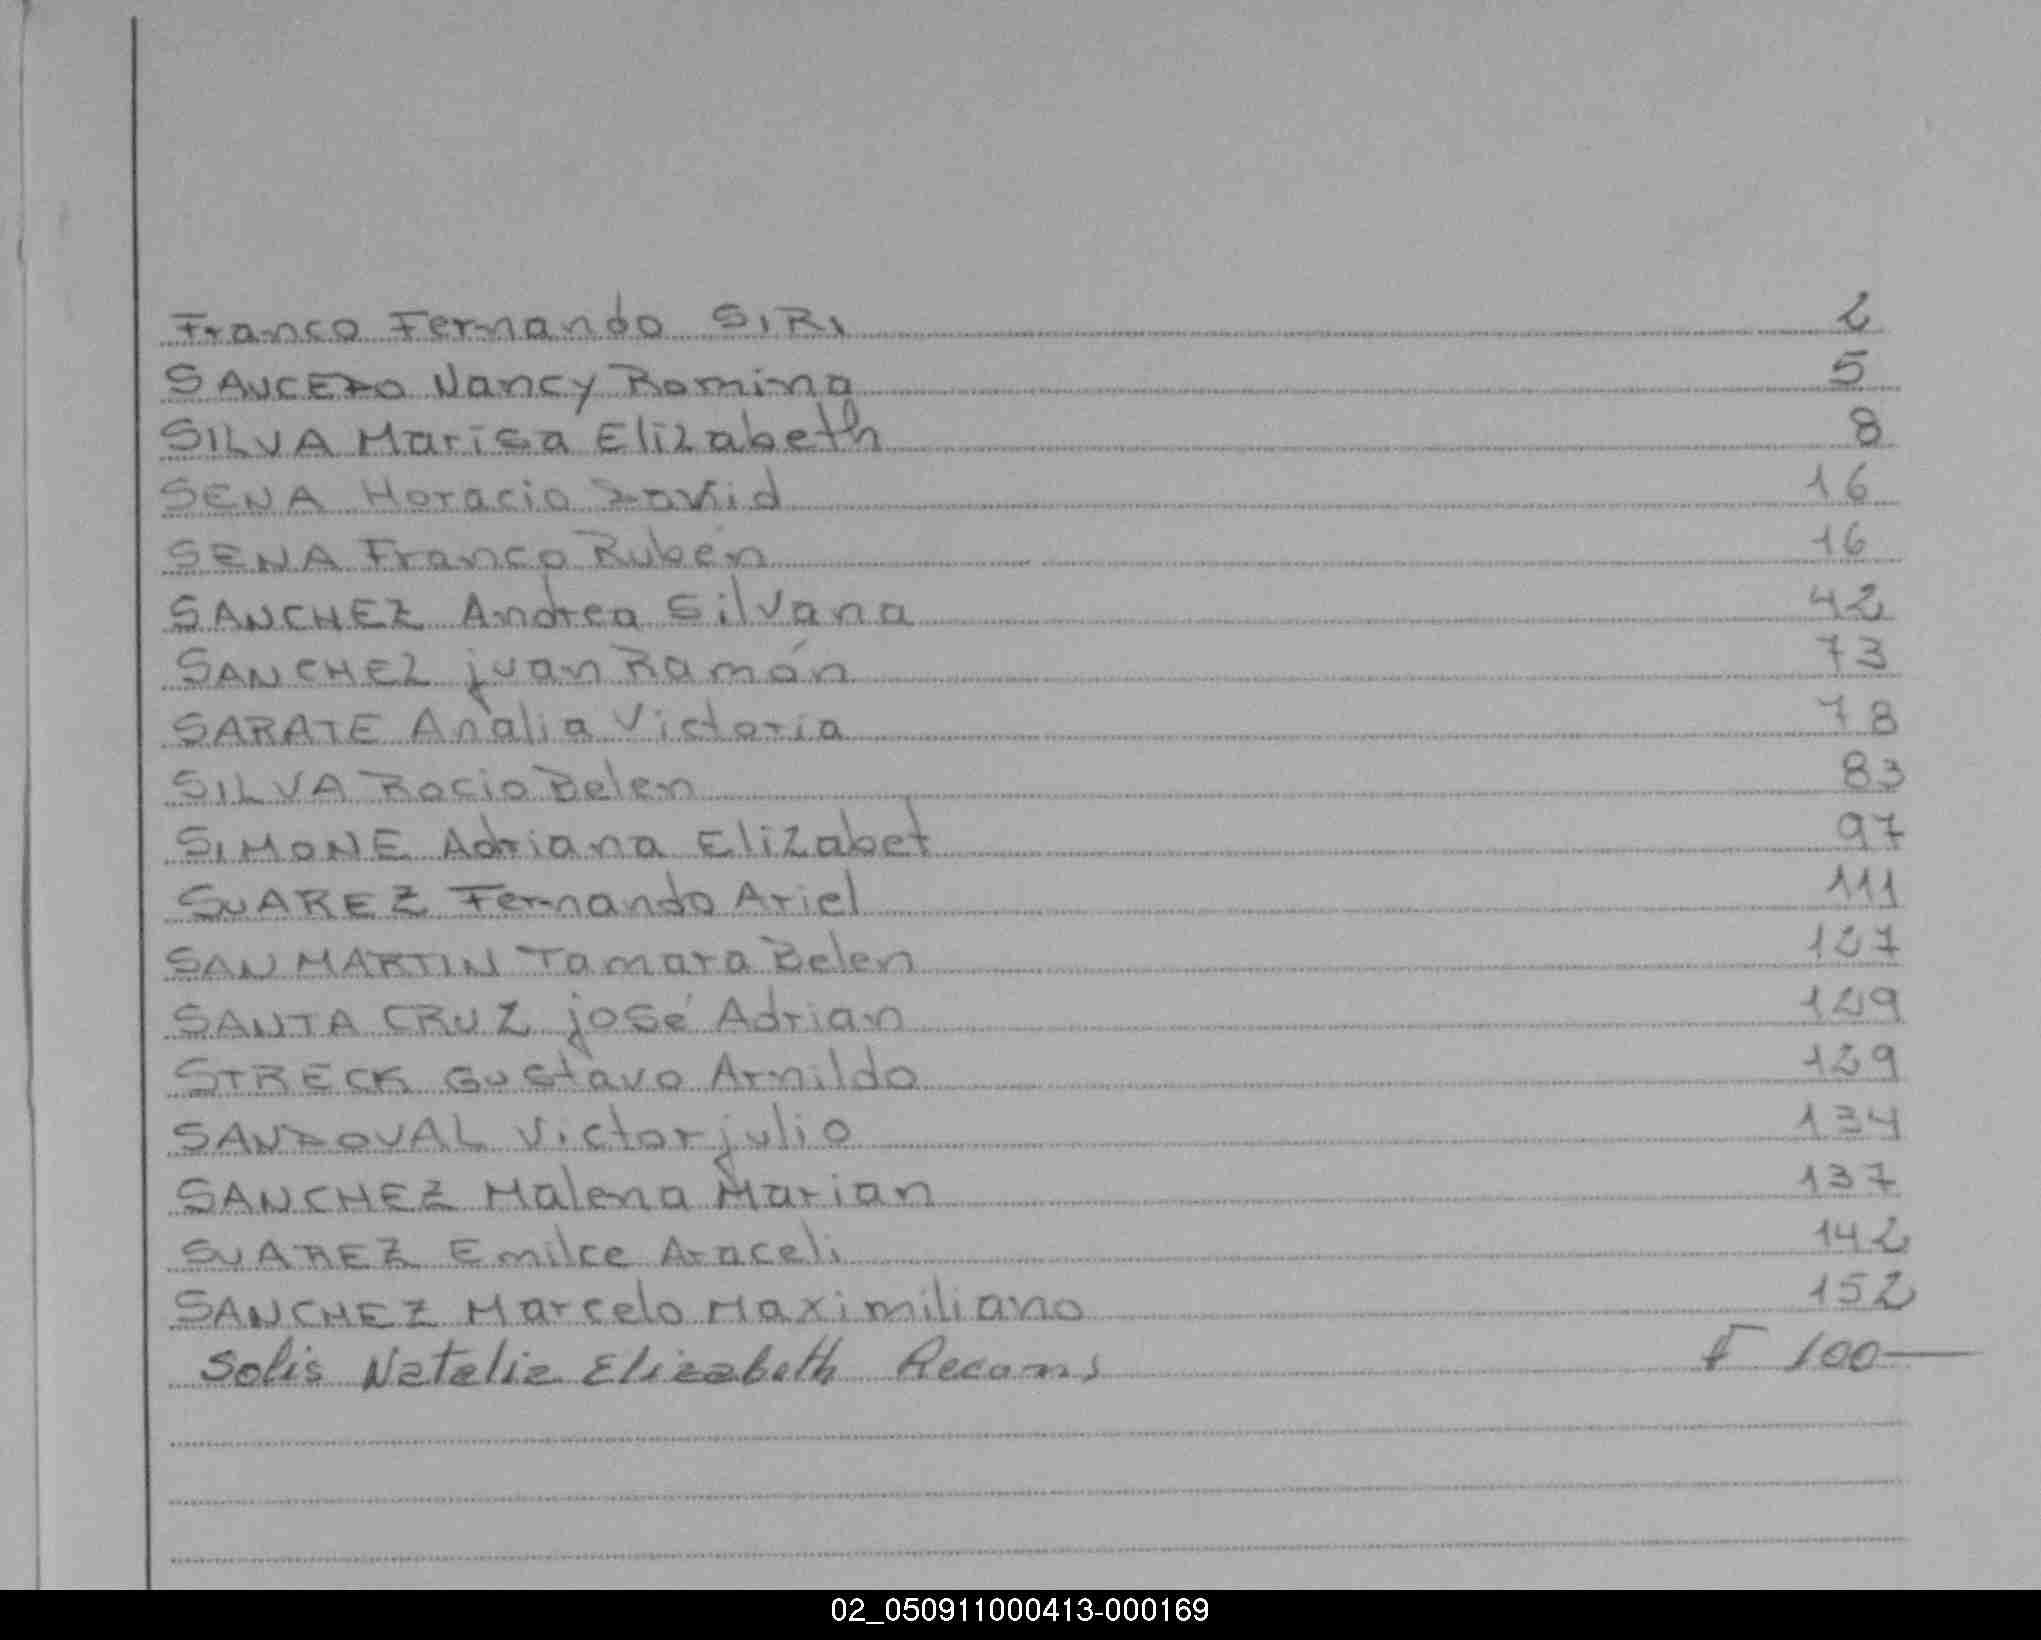 Franco Fernando SIRI 2
SAUCEDO Nancy Romina 5
SILVA Marisa Elizabeth 8
SENA Horacio David 16
SENA Franco Rubén 16
SANCHEZ Andrea Silvana 42
SANCHEZ juan Ramón 73
SARATE Analia Victoria 78
SILVA Rocio Belen 83
SIMONE Adriana Elizabet 97
SUAREZ Fernando Ariel 111
SAN MARTIN Tamara Belen 127
SANTA CRUZ josé Adrian 129
STRECK Gustavo Arnildo 129
SANDOVAL Victor julio 134
SANCHEZ Malena Marian 137
SUAREZ Emilce Araceli 142
SANCHEZ Marcelo Maximiliano 152
Solis Natalia Elizabeth 100
02_050911000413-000169